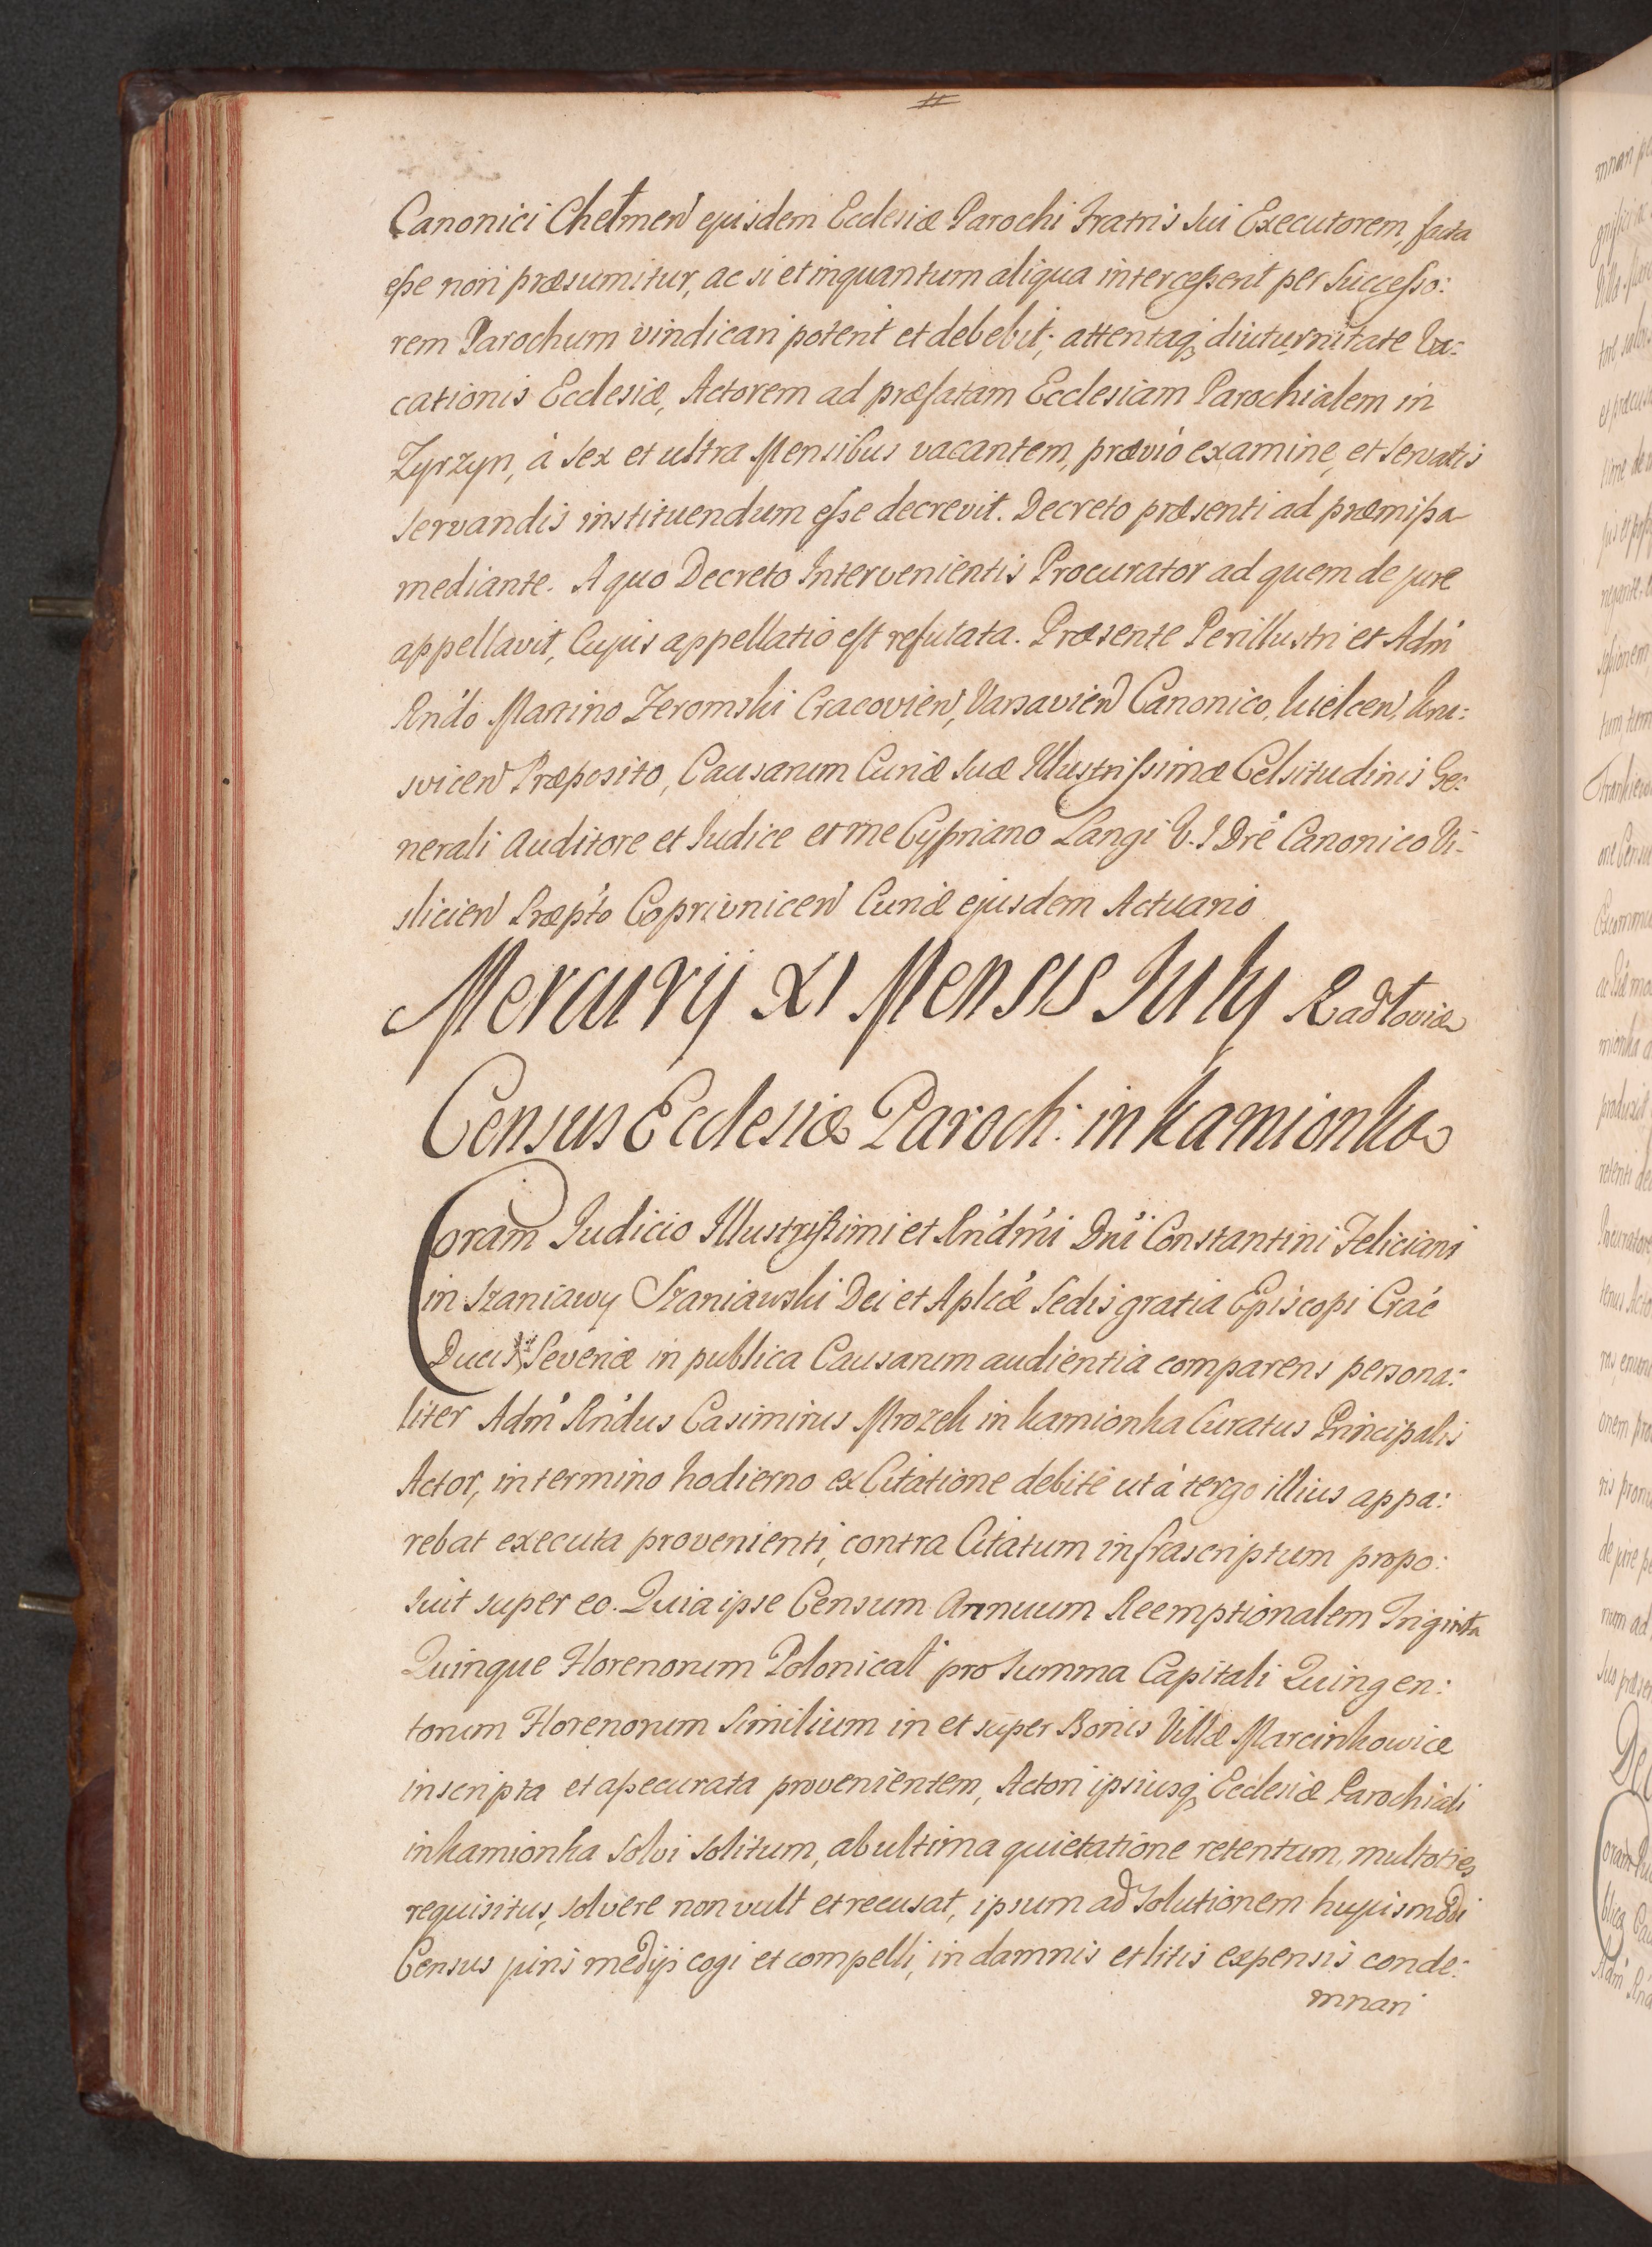 Canonici Chełmen ejusdem Ecclesiæ Parochi Fratris sui Executorem, facta
esse non præsumitur, ac si et inquantum aliqua intercesserit per Successo:
rem Parochum vindicari poterit et debebit; attentaq, diuturnitate Va:
cationis Ecclesiæ, Actorem ad præfatam Ecclesiam Parochialem in
Zyrzyn, à sex et ultra Mensibus vacantem, prævio examine, et servatis
servandis instituendum esse decrevit. Decreto præsenti ad præmissa
mediante. A quo Decreto Intervenientis Procurator ad quem de jure
appellavit, Cujus appellatio est refutata. Præsente Perillustri et Adm
Rndo Martino Żeromski Cracovien, Varsavien Canonico, Kielcen,
svicen Præposito, Causarum Curiæ suæ Illustrissimæ Celsitudinis Ge:
nerali Auditore et Iudice et me Cypriano Langi V. I. Dre Canonico Vi:
slicien Præpto Coprivnicen Curiæ ejusdem Actuario
Mercurij XI Mensis July Radłoviæ
Census Ecclesiæ Paroch: in Kamionka
Coram Iudicio Illustrissimi et Rndmi Dni Constantini Feliciani
in Szaniawy Szaniawski Dei et Aplicæ Sedis gratia Episcopi Crac
Ducis Severiæ in publica Causarum audientia comparens persona:
liter Adm Rndus Casimirus Mrozek in Kamionka Curatus Principalis
Actor, in termino hodierno ex Citatione debite ut à tergo illius appa:
rebat executa provenienti, contra Citatum infrascriptum propo:
suit super eo. Quia ipse Censum Annuum Reemptionalem Triginta
Quinque Florenorum Polonical pro Summa Capitali Quingen:
torum Florenorum Similium in et super Bonis Villæ Marcinkowice
inscripta et assecurata provenientem, Actori ipsiusq, Ecclesiæ Parochiali
in Kamionka solvi solitum, ab ultima quietatione retentum, multoties
requisitus, solvere non vult et recusat, ipsum ad solutionem hujusmodi
Census juris medijs cogi et compelli, in damnis et litis expensis conde:
mnari